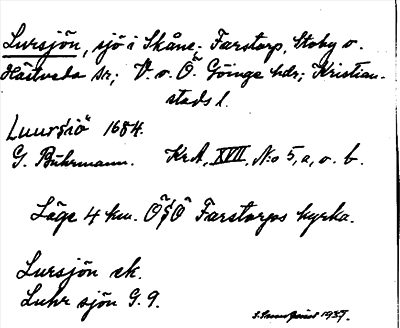 Lursjön, sjö i Skåne; Farstorp, Stoby o.
Hästveda sr; V. o. Ö. Göinge hdr; Kristian-
stads l.
Luursiö 1684.
G. Buhrmann. KrA, XVII, No 5, a, o. b.
Läge 4 km. OSO Farstorps kyrka.
Lursjön ek.
Luhr sjön G. 9.
1937.